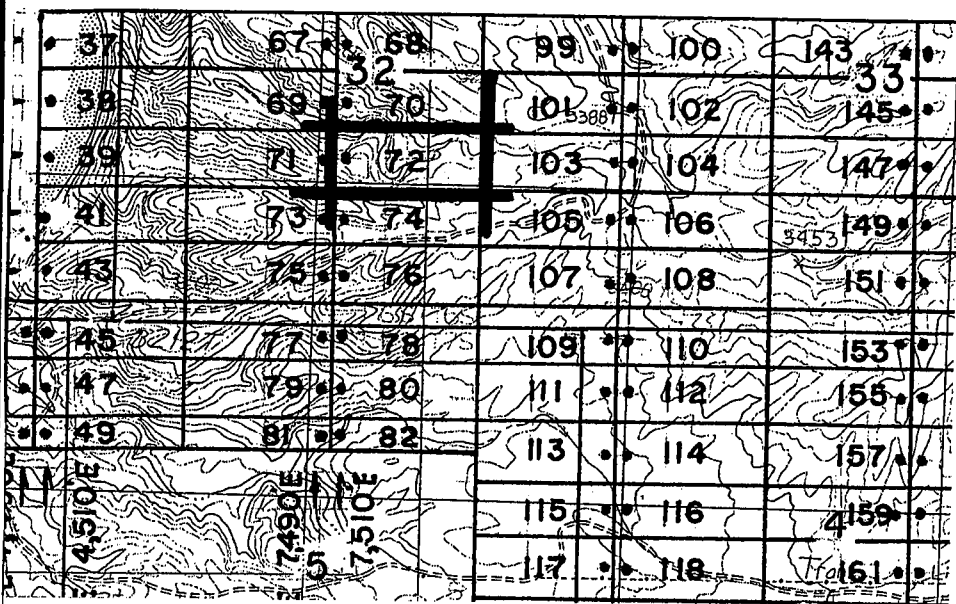 37 67 68 99 100 143
32 33
38 69 70 101 3388 102 145
39 71 72 103 104 147
41 73 74 105 106 149
3453
43 75 76 107 108 151
45 77 78 109 110 153
47 79 80 111 112 155
49 81 82 113 114 157
4,510'E 7,490'E 7,510'E
115 116 4 159
5 117 118 161